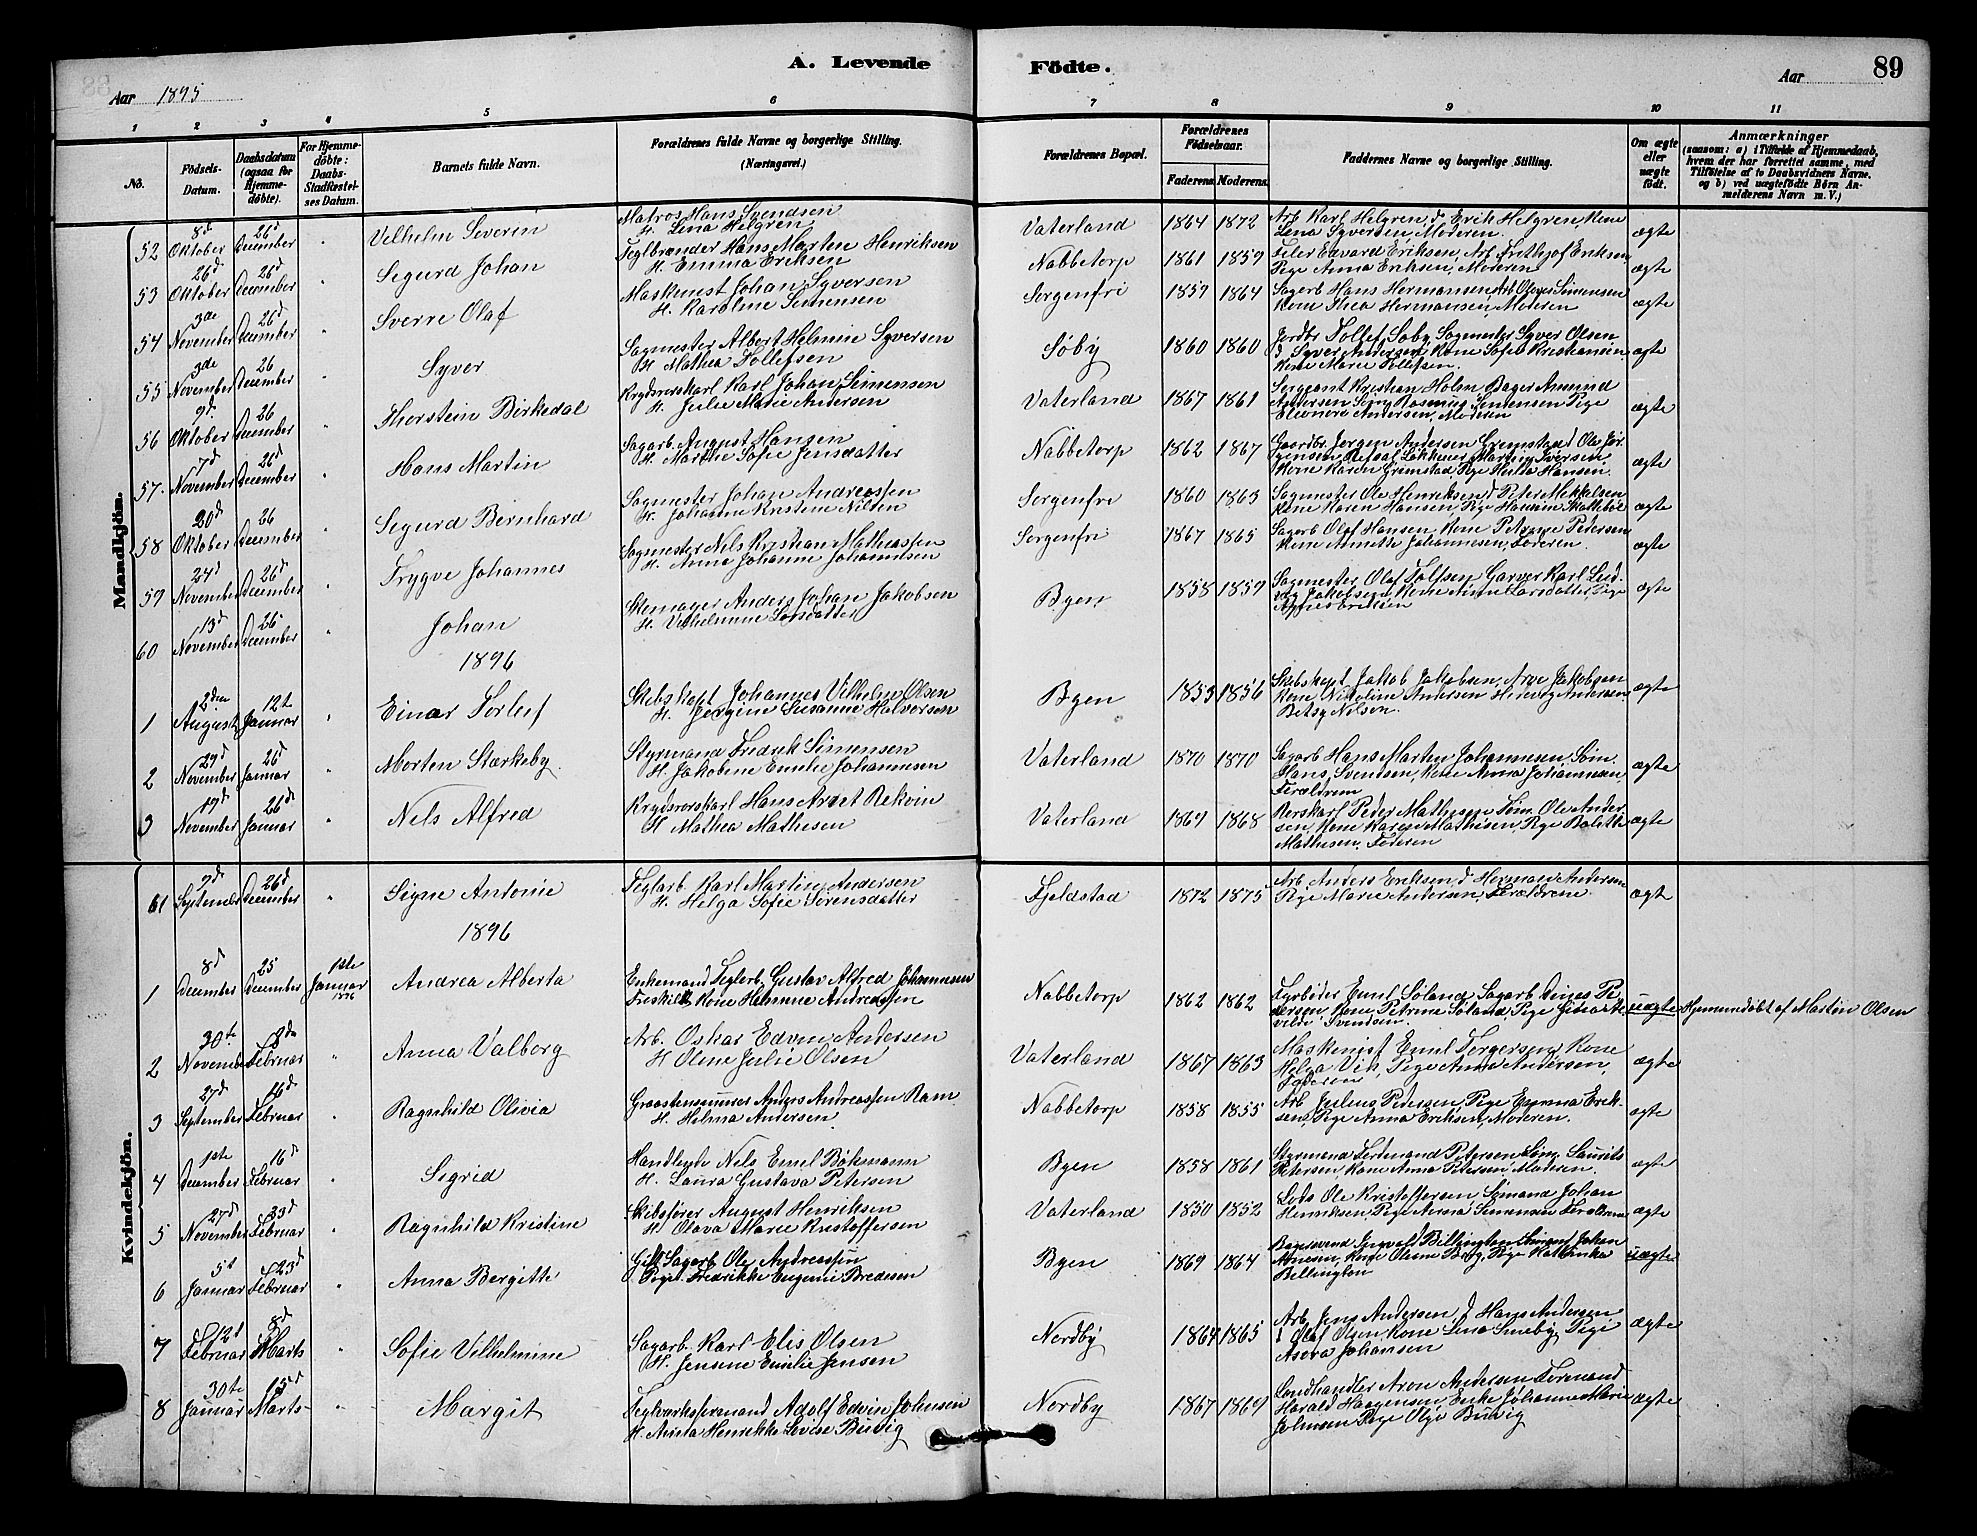 A. Levende Födte.
89
Aar 1895
Aar
1 2 3 4 5 6 7 8 9 10 11
No.
Födsels-Datum.
Daabsdatum (ogsaa for Hjemme-döbte).
For Hjemme-döbte: Daabs-Stadfæstel-ses Datum.
Barnets fulde Navn.
Forældrenes fulde Navne og borgerlige Stilling. (Næringsvei.)
Forældrenes Bopæl.
Forældrenes Födselsaar.
Faderens. Moderens.
Faddernes Navne og borgerlige Stilling.
Om ægte eller uægte födt.
Anmærkninger
(saasom: a) i Tilfælde af Hjemmedaab, hvem der har forrettet samme, med Tilföielse af to Daabsvidners Navne, og b) ved uægtefödte Börn An-melderens Navn m. V.)
Mandkjön.
52 8d Oktober 26d December " Vilhelm Severin
Matros Hans Svendsen
H. Lina Helgren
Vaterland 1864 1872
Arb. Karl Helgren, d Erik Helgren, Kone
Lena Syversen, Moderen.
ægte
53 26d Oktober 26d December " Sigurd Johan
Teglbrænder Hans Marten Henriksen
H. Emma Eriksen
Nabbetorp 1861 1859
Feier Edvard Eriksen, Arb. Frithjof Eriksen
Pige Anna Eriksen, Moderen
ægte
54 3de November 26d December " Sverre Olaf
Maskinist Johan Syversen
H. Karoline Simensen
Sorgenfri 1857 1864
Sagarb Hans Hermansen, Arb. Oluf Simensen
Kone Thea Hermansen, Moderen
ægte
55 3de November 26 December " Syver
Sagmester Albert Helmine Syversen
H. Mathea Tollefsen
Söby 1860 1860
Jordbr. Tollef Söby, Sagmester Syver Olsen
d Syver Andersen, Kone Sofie Kristiansen
Kone Marie Tollefsen.
ægte
56 9d Oktober 26 December " Thorstein Birkedal
Krydserskarl Karl Johan Simensen
H. Julie Marie Andersen
Vaterland 1867 1861
Sergeant Kristian Holm, Bager Amund
Andersen, Rasmus Simensen, Pige
Eleonore Andersen, Moderen
ægte
57 7d November 26d December " Hans Martin
Sagarb. August Hansen
H. Marthe Sofie Jensdatter
Nabbetorp 1862 1867
Gaardbr. Jorgen Andersen Grimstad, d Ole Jör-
gensen Refsal, Martin Iversen
Kone Karen Grimstad, Pige Hulda Hansen.
ægte
58 20d Oktober 26 December " Sigurd Bernhard
Sagmester Johan Andreassen
H. Johanne Kristine Nilsen
Sorgenfri 1860 1863
Sagmester Ole Henriksen, d Peter Mikkelsen
Kone Karen Hansen, Pige
ægte
59 24d November 26d December " Trygve Johannes
Sagmester Nils Kristian Mathiassen
H. Anna Johanne Johannesen
Sorgenfri 1867 1865
Sagarb Olaf Hansen, Kone Petrine Pedersen
Kone Annette Johannesen, Faderen.
ægte
60 13d November 26 December " Johan
Stenhuger Anders Johan Jakobsen
H. Vilhelmine Larsdatter
Byen 1858 1859
Sagmester Olaf Tolfsen, Garver Karl Lud-
vig Jakobsen, Kone Anne Larsdatter, Pige
Agnes Eriksen
ægte
1896
1 2den August 12t Januar " Einar Torleif
Skibskapt Johannes Vilhelm Olsen
H. Jörgine Susanne Halvorsen
Byen 1853 1856
Skibskapt Jakob Jakobsen, Arve Jakobsen
Kone Nikoline Andersen Hedevig Andersen
Betsy Nilsen.
ægte
2 29d November 26d Januar " Morten Starkeby
Styrmand Fredrik Simensen
H. Jakobine Emilie Johannesen
Vaterland 1870 1870
Sagarb Hans Marten Johannesen, Söm.
Hans Svendsen, Kone Anna Johannesen
Foreldrene
ægte
3 19d November 26de Januar " Nils Alfred
Krydserskarl Hans Arvet Rekvin
H Mathea Mathisen
Vaterland 1869 1868
Rorskarl Peder Mathisen, Söm. Ole Ander-
sen, Kone Karen Mathisen, Pige Bolette
Mathisen, Faderen
ægte
Kvindekjön.
61 9d September 26d December " Signe Antonie
Teglarb. Karl Martin Andersen
H. Helga Sofie Sörensdatter
Fjeldstad 1872 1875
Arb. Anders Eriksen, d Herman Andersen
Pige Marie Andersen, Foreldrene.
ægte
1896
1 8d December 25 December 1ste Januar 1896 Andrea Alberta
Enkemand Teglarb. Gustav Alfred Johannesen
Fraskilt Kone Helmine Andreassen
Nabbetorp 1862 1862
Fyrböder Emil Söland, Sagarb. Pe-
dersen Kone Petrine Söland, Pige
Svendsen.
uægte
Hjemmedöbt af Martin Olsen
2 30te November 9de Februar " Anna Valborg
Arb. Oskar Edvin Andersen
H Oline Julie Olsen
Vaterland 1867 1863
Maskinist Emil Torgersen, Kone
Helga Vik, Pige Anna Andersen,
Faderen
ægte
3 27d September 16d Februar " Ragnhild Olivia
Graastensminer Anders Andreassen Ram
H. Helma Andersen.
Nabbetorp 1858 1855
Arb. Julius Pedersen, Pige Emma Erik-
sen, Pige Anna Eriksen, Moderen.
ægte
4 1ste December 16d Februar " Sigrid
Handlende Nils Emil Bökmann
H. Laura Gustava Petersen
Byen 1858 1861
Styrmand Ferdinand Petersen, Laurits
Petersen, Kone Anna Petersen Moderen.
ægte
5 27d November 23d Februar " Ragnhild Kristine
Skibsförer August Henriksen
H. Olava Marie Kristoffersen
Vaterland 1850 1852
Lods Ole Kristoffersen, Sömand Johan
Henriksen, Pige Anna Simensen Foreldrene
ægte
6 5t Januar 23d Februar " Anna Bergitte
Gift Sagarb Ole Andreassen
Pige Fredrikke Eugenie Bredesen
Byen 1869 1864
Ingvald Billington, Johan
Arnesen, Kone Oline Berg, Pige Kathinka
Billington
uægte
7 12t Februar 8d Marts " Sofie Vilhelmine
Sagarb. Karl Elis Olsen
H. Jensine Emilie Jensen
Nordby 1864 1865
Arb. Jens Andersen, d Hans Andersen
d Olaf Olsen, Kone Lina Smeby, Pige
Asora Johansen
ægte
8 30te Januar 15d Marts " Margit
Teglværksformand Adolf Edvin Johnsen
H. Anna Henrikke Lovise Buvig
Nordby 1867 1869
Landhandler Aron Andersen, Formand
Harald Haagensen, Enke Johanne Marie
Johnsen, Pige Olga Buvig
ægte